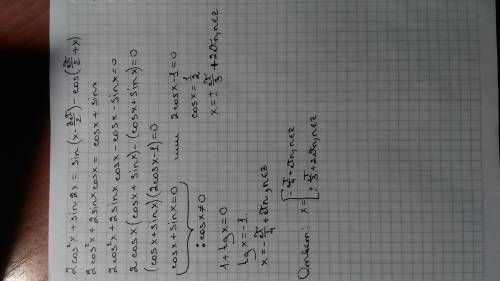 2cos²x + sin2x = sin(x - 3π/2) - cos(3π/2 + x)
2cos²x + 2sinx cosx = cosx + sinx
2cos²x + 2sinx cosx - cosx - sinx = 0
2cosx (cosx + sinx) - (cosx + sinx) = 0
(cosx + sinx)(2cosx - 1) = 0
cosx + sinx = 0 или 2cosx - 1 = 0
: cosx ≠ 0 cosx = 1/2
1 + tgx = 0 x = ± π/3 + 2πn, n∈z
tgx = -1
x = -π/4 + πn, n∈z
Ответ: x = [ -π/4 + πn, n∈z
± π/3 + 2πn, n∈z